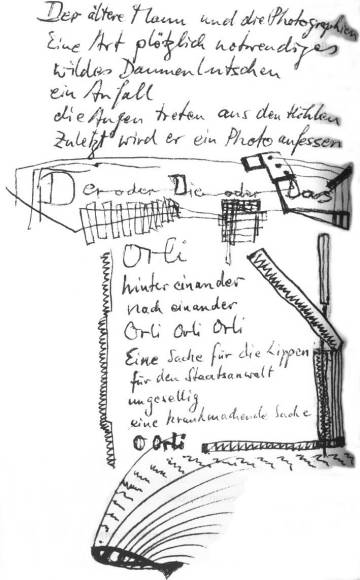 Der ältere Mann und die Photographien
Eine Art plötzlich notwendiges
wildes Daumenlutschen
ein Anfall
die Augen treten aus den Höhlen
Zuletzt wird er ein Photo anfessen
Der oder Die oder Das
Orli
hintereinander
nach einander
Orli Orli Orli
Eine Sache für die Lippen
für den Staatsanwalt
ungesellig
eine krankmachende Sache
O Orli